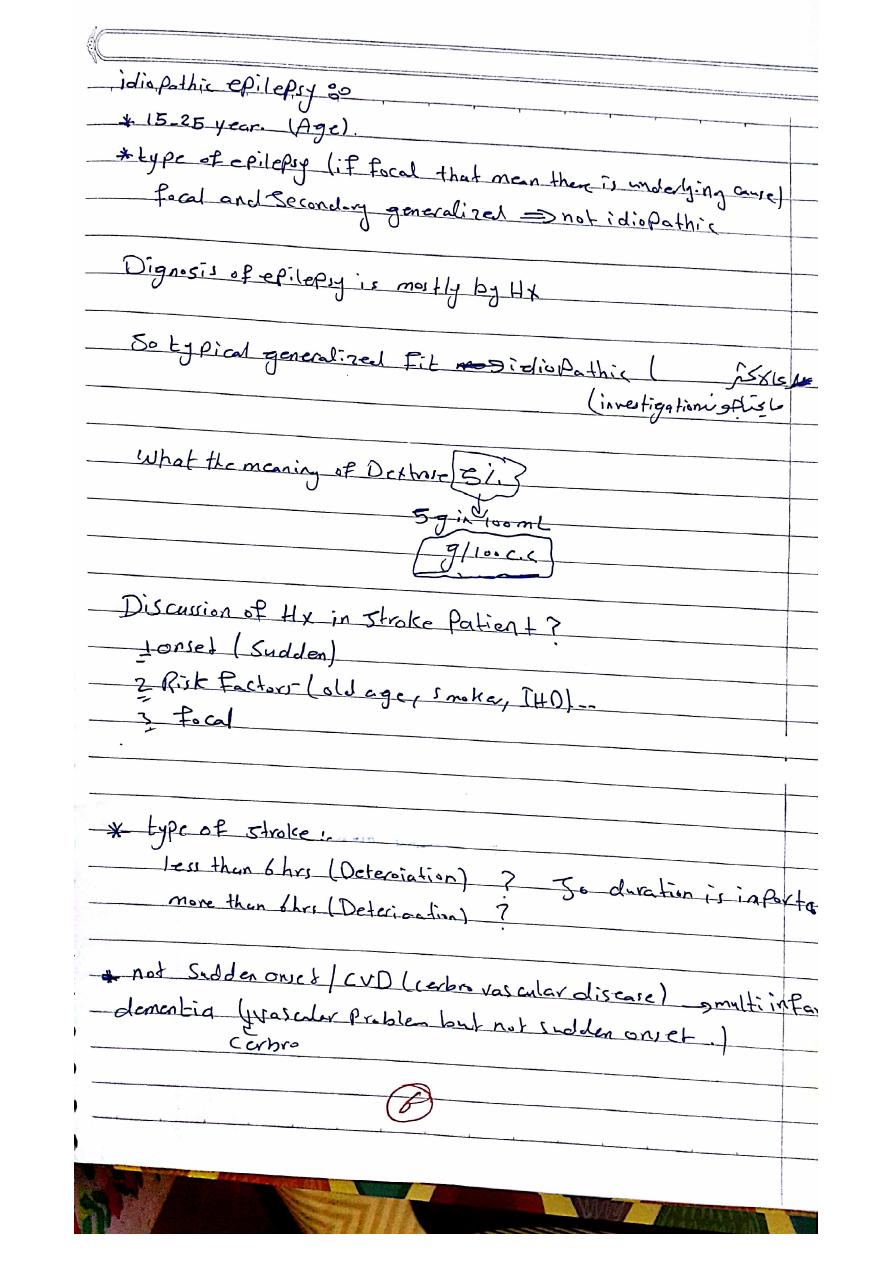 idiopathic epilepsy :-
* 15-25 year. (Age).
* type of epilepsy (if focal that mean there is underlying cause)
focal and Secondary generalized ⇒ not idiopathic
Dignosis of epilepsy is mostly by Hx
So typical generalized fit → idiopathic (
(investigation
What the meaning of Dextrose 5%
5 g in 100 mL
g/100 c.c
Discussion of Hx in stroke Patient ?
1 onset (Sudden)
2 Risk factors (old age, smoker, IHD)--
3 focal
* type of stroke :.
less than 6 hrs (Deteroiation) ? So duration is inporta
more than 6hrs (Deterioation) ?
* not Sudden onset / CVD (cerbro vascular disease) → multi infa
dementia (vascular problem but not sudden onset .)
Cerbro
6